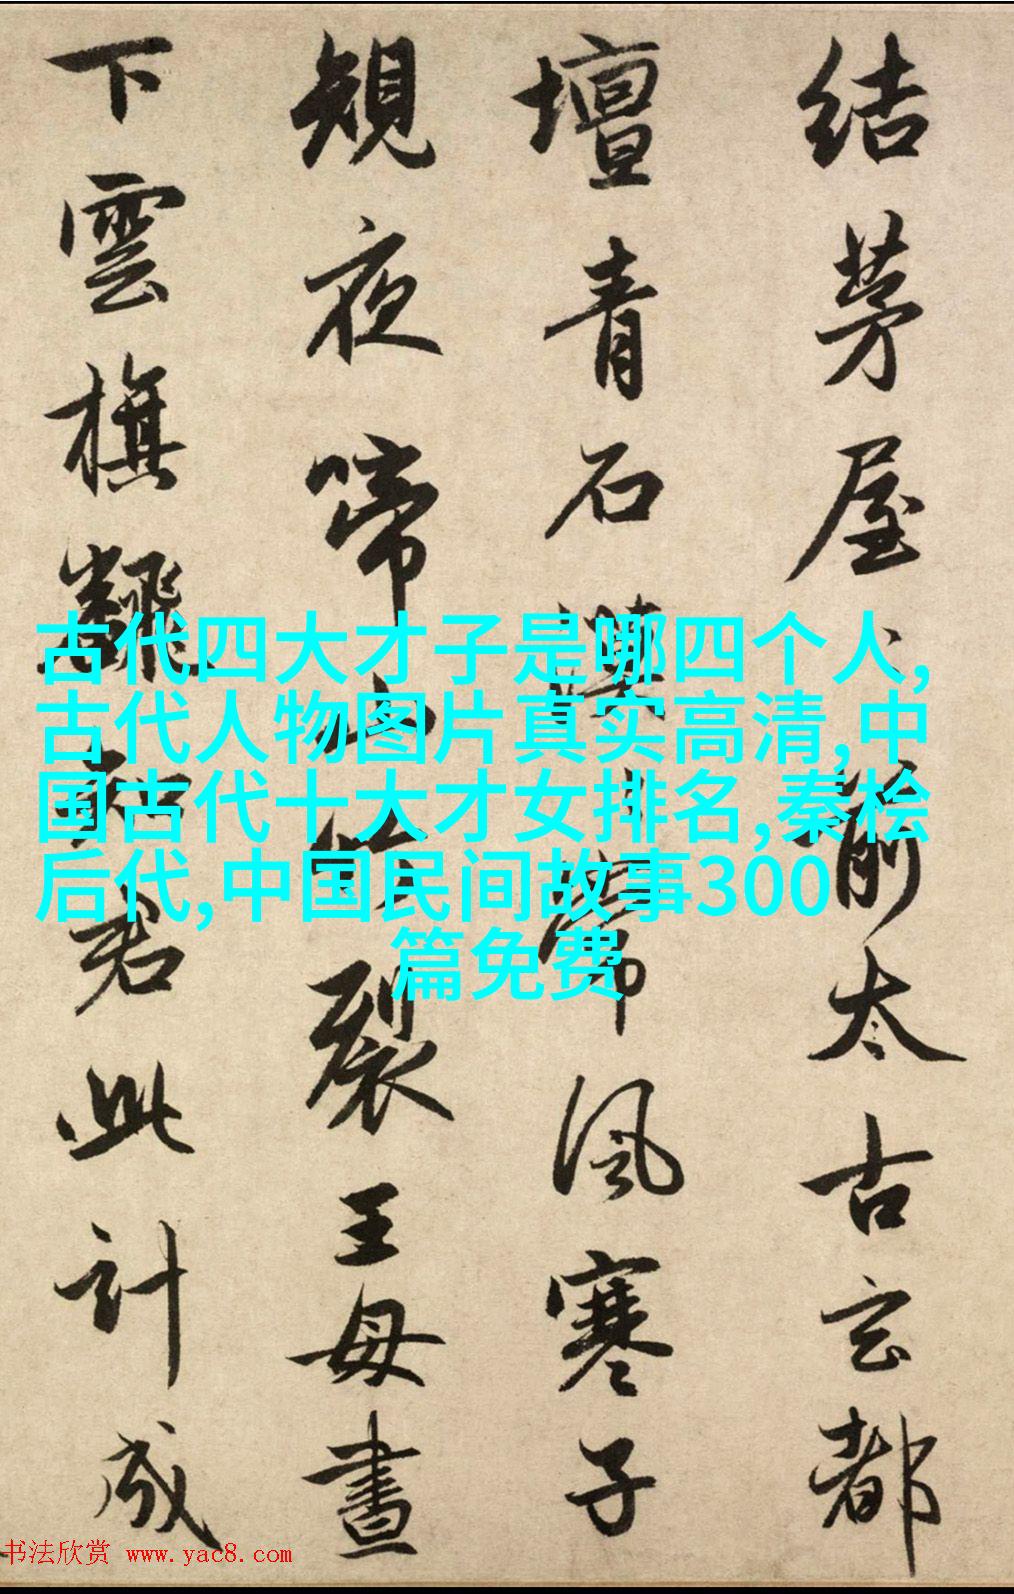 結茅屋々前太古玄都
壇青石漠々常風寒子
規夜啼山竹裂王母晝
下雲旗翻知君此計成
古代四大才子是哪四个人,
古代人物图片真实高清,中
国古代十大才女排名,秦桧
后代,中国民间故事300
篇免费
书法欣赏 www.yac8.com